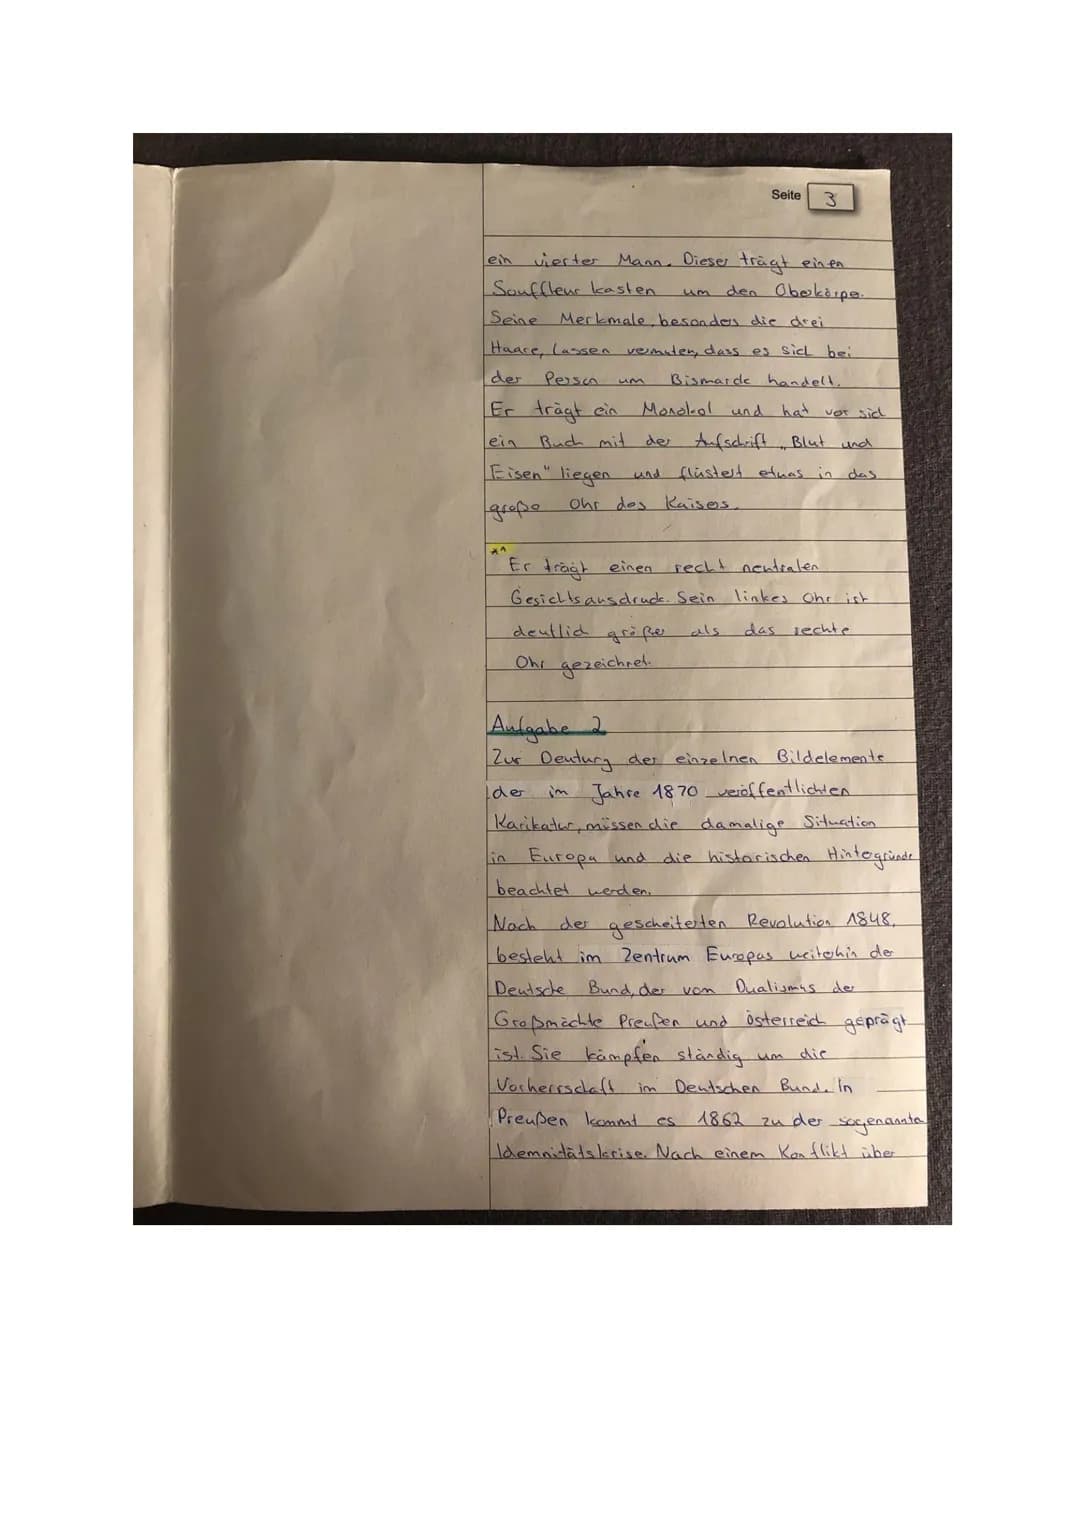 Seite 3
ein vierter Mann. Dieser trägt einen
Souffleur kasten um den Oberkörper.
Seine Merkmale, besonders die drei
Haare, lassen vermuten, dass es sich bei
der Person um Bismarck handelt.
Er trägt ein Monokol und hat vor sich
ein Buch mit der Aufschrift „Blut und
Eisen" liegen und flüstert etwas in das
große Ohr des Kaisers.
*1
Er trägt einen recht neutralen
Gesichtsausdruck. Sein linkes Ohr ist
deutlich größer als das rechte
Ohr gezeichnet.
Aufgabe 2
Zur Deutung der einzelnen Bildelemente
der im Jahre 1870 veröffentlichten
Karikatur, müssen die damalige Situation
in Europa und die historischen Hintergründe
beachtet werden.
Nach der gescheiterten Revolution 1848,
besteht im Zentrum Europas weiterhin der
Deutsche Bund, der vom Dualismus der
Großmächte Preußen und Österreich geprägt
ist. Sie kämpfen ständig um die
Vorherrschaft im Deutschen Bund. In
Preußen kommt es 1862 zu der sogenannten
Idemnitätskrise. Nach einem Konflikt über